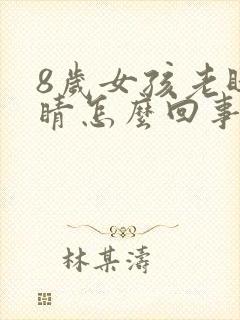 8歲女孩老眨
睛怎麼回事
林某濤